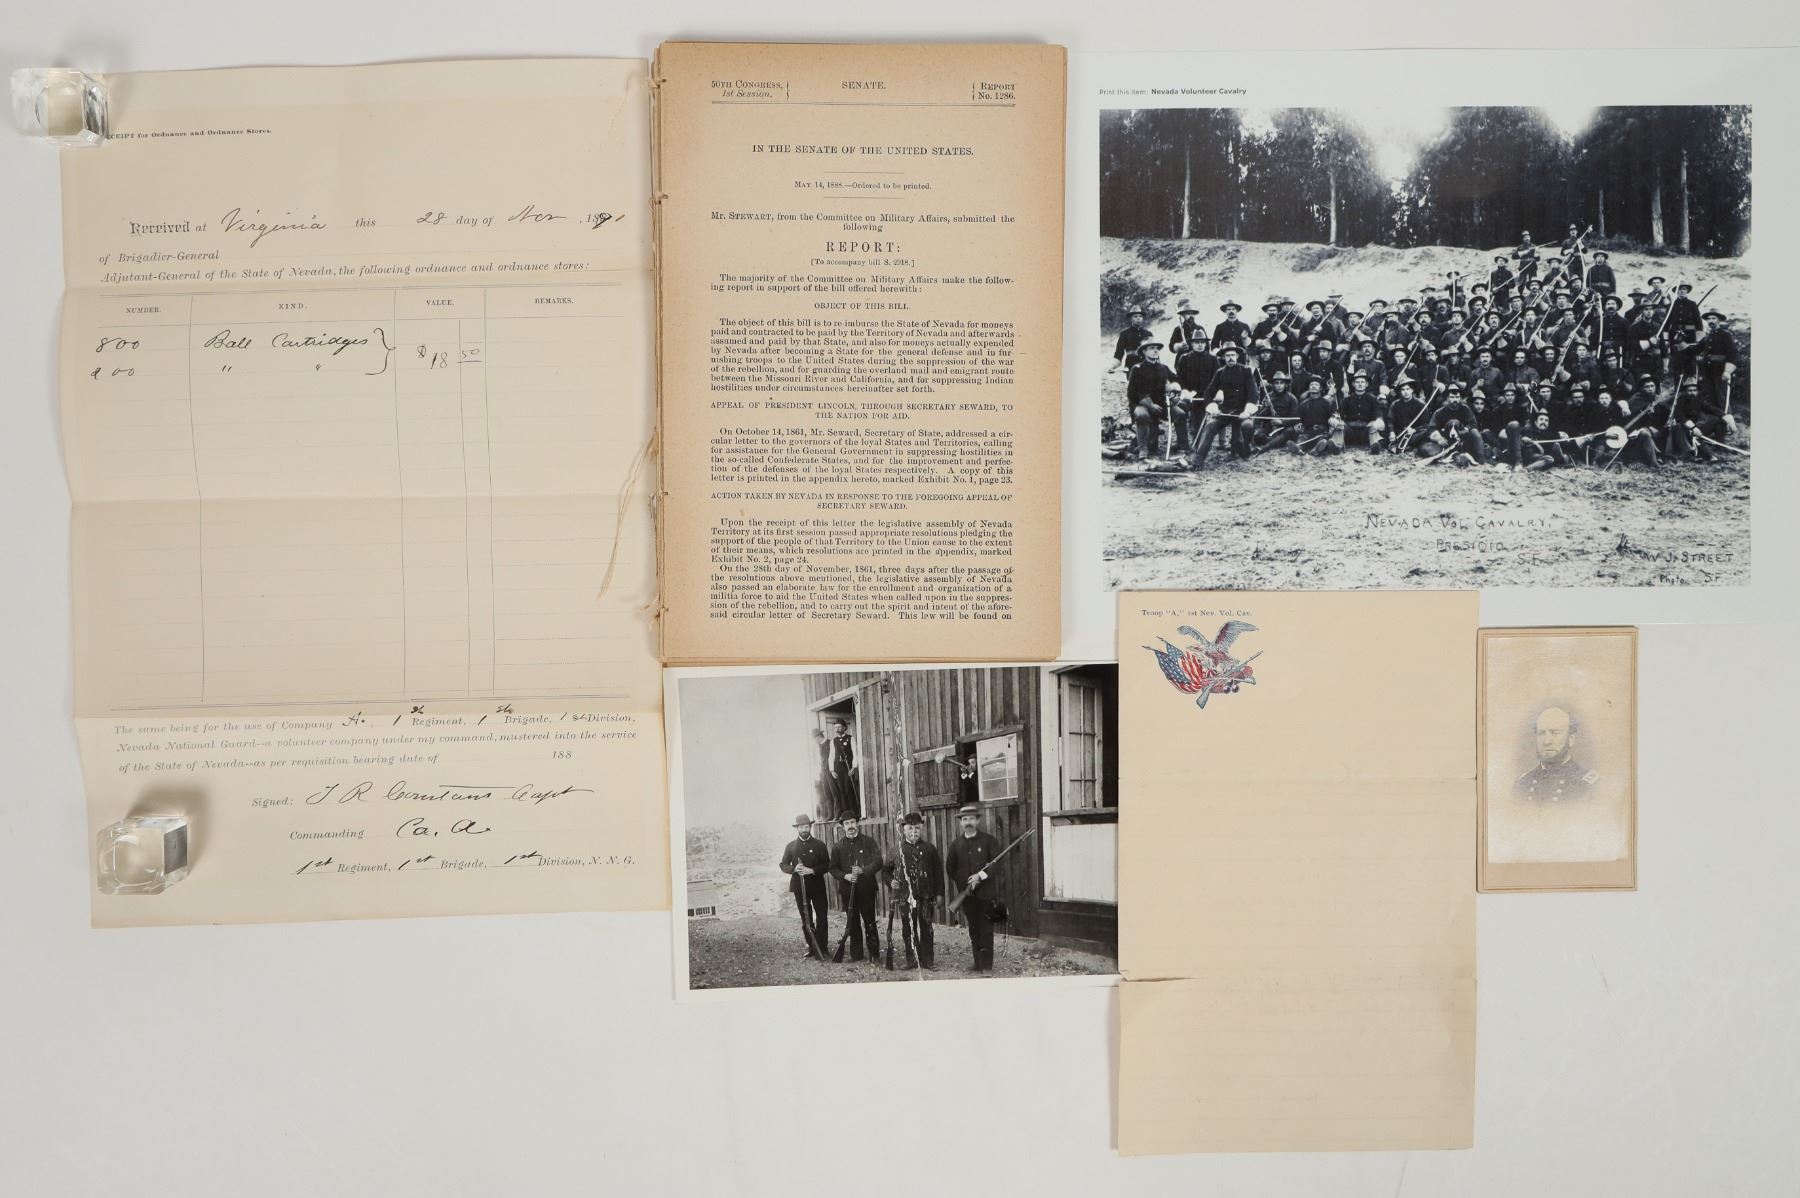 CEIPT for Ordnance and Ordnance Stores.
Received at Virginia this 28 day of Nov, 1891
of Brigadier-General
Adjutant-General of the State of Nevada, the following ordnance and ordnance stores:
NUMBER. KIND. VALUE. REMARKS.
800 Ball Cartridges } $18 50
200 " "
The same being for the use of Company A. 1st Regiment, 1st Brigade, 1st Division,
Nevada National Guard--a volunteer company under my command, mustered into the service
of the State of Nevada--as per requisition bearing date of 188
Signed: J R Capt
Commanding Co. A.
1st Regiment, 1st Brigade, 1st Division, N. N. G.
50TH CONGRESS, } SENATE. { REPORT
1st Session. } { No. 1286.
IN THE SENATE OF THE UNITED STATES.
MAY 14, 1888.—Ordered to be printed.
Mr. STEWART, from the Committee on Military Affairs, submitted the
following
REPORT:
[To accompany bill S. 2918.]
The majority of the Committee on Military Affairs make the follow-
ing report in support of the bill offered herewith:
OBJECT OF THIS BILL.
The object of this bill is to re-imburse the State of Nevada for moneys
paid and contracted to be paid by the Territory of Nevada and afterwards
assumed and paid by that State, and also for moneys actually expended
by Nevada after becoming a State for the general defense and in fur-
nishing troops to the United States during the suppression of the war
of the rebellion, and for guarding the overland mail and emigrant route
between the Missouri River and California, and for suppressing Indian
hostilities under circumstances hereinafter set forth.
APPEAL OF PRESIDENT LINCOLN, THROUGH SECRETARY SEWARD, TO
THE NATION FOR AID.
On October 14, 1861, Mr. Seward, Secretary of State, addressed a cir-
cular letter to the governors of the loyal States and Territories, calling
for assistance for the General Government in suppressing hostilities in
the so-called Confederate States, and for the improvement and perfec-
tion of the defenses of the loyal States respectively. A copy of this
letter is printed in the appendix hereto, marked Exhibit No. 1, page 23.
ACTION TAKEN BY NEVADA IN RESPONSE TO THE FOREGOING APPEAL OF
SECRETARY SEWARD.
Upon the receipt of this letter the legislative assembly of Nevada
Territory at its first session passed appropriate resolutions pledging the
support of the people of that Territory to the Union cause to the extent
of their means, which resolutions are printed in the appendix, marked
Exhibit No. 2, page 24.
On the 28th day of November, 1861, three days after the passage of
the resolutions above mentioned, the legislative assembly of Nevada
also passed an elaborate law for the enrollment and organization of a
militia force to aid the United States when called upon in the suppres-
sion of the rebellion, and to carry out the spirit and intent of the afore-
said circular letter of Secretary Seward. This law will be found on
Print this item: Nevada Volunteer Cavalry
"NEVADA VOL. CAVALRY,"
PRESIDIO
S.F.
W.J. STREET
Photo S.F.
Troop "A," 1st Nev. Vol. Cav.